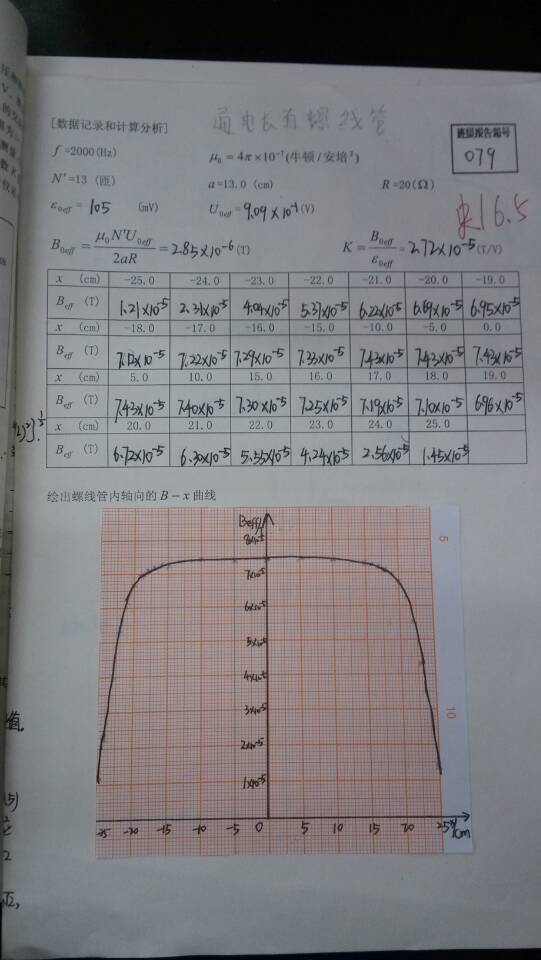 通电长直螺线管
[数据记录和计算分析]
班级报告箱号
079
f =2000(Hz) μ₀ = 4π×10⁻⁷(牛顿/安培²)
N'=13 (匝) a=13.0 (cm) R=20(Ω)
16.5
ε0eff = 105 (mV) U0eff = 9.09×10⁻¹(V)
B0eff = μ₀N'U0eff / 2aR = 2.85×10⁻⁶(T) K = B0eff / ε0eff = 2.72×10⁻⁵(T/V)
x (cm) -25.0 -24.0 -23.0 -22.0 -21.0 -20.0 -19.0
Beff (T) 1.21×10⁻⁵ 2.31×10⁻⁵ 4.04×10⁻⁵ 5.37×10⁻⁵ 6.22×10⁻⁵ 6.69×10⁻⁵ 6.95×10⁻⁵
x (cm) -18.0 -17.0 -16.0 -15.0 -10.0 -5.0 0.0
Beff (T) 7.12×10⁻⁵ 7.22×10⁻⁵ 7.29×10⁻⁵ 7.33×10⁻⁵ 7.43×10⁻⁵ 7.43×10⁻⁵ 7.43×10⁻⁵
x (cm) 5.0 10.0 15.0 16.0 17.0 18.0 19.0
Beff (T) 7.43×10⁻⁵ 7.40×10⁻⁵ 7.30×10⁻⁵ 7.25×10⁻⁵ 7.19×10⁻⁵ 7.10×10⁻⁵ 6.96×10⁻⁵
x (cm) 20.0 21.0 22.0 23.0 24.0 25.0
Beff (T) 6.72×10⁻⁵ 6.30×10⁻⁵ 5.55×10⁻⁵ 4.24×10⁻⁵ 2.56×10⁻⁵ 1.45×10⁻⁵
绘出螺线管内轴向的 B－x 曲线
Beff/T
8×10⁻⁵
5
7×10⁻⁵
6×10⁻⁵
5×10⁻⁵
4×10⁻⁵
3×10⁻⁵
10
2×10⁻⁵
1×10⁻⁵
-25 -20 -15 -10 -5 0 5 10 15 20 25 x/cm